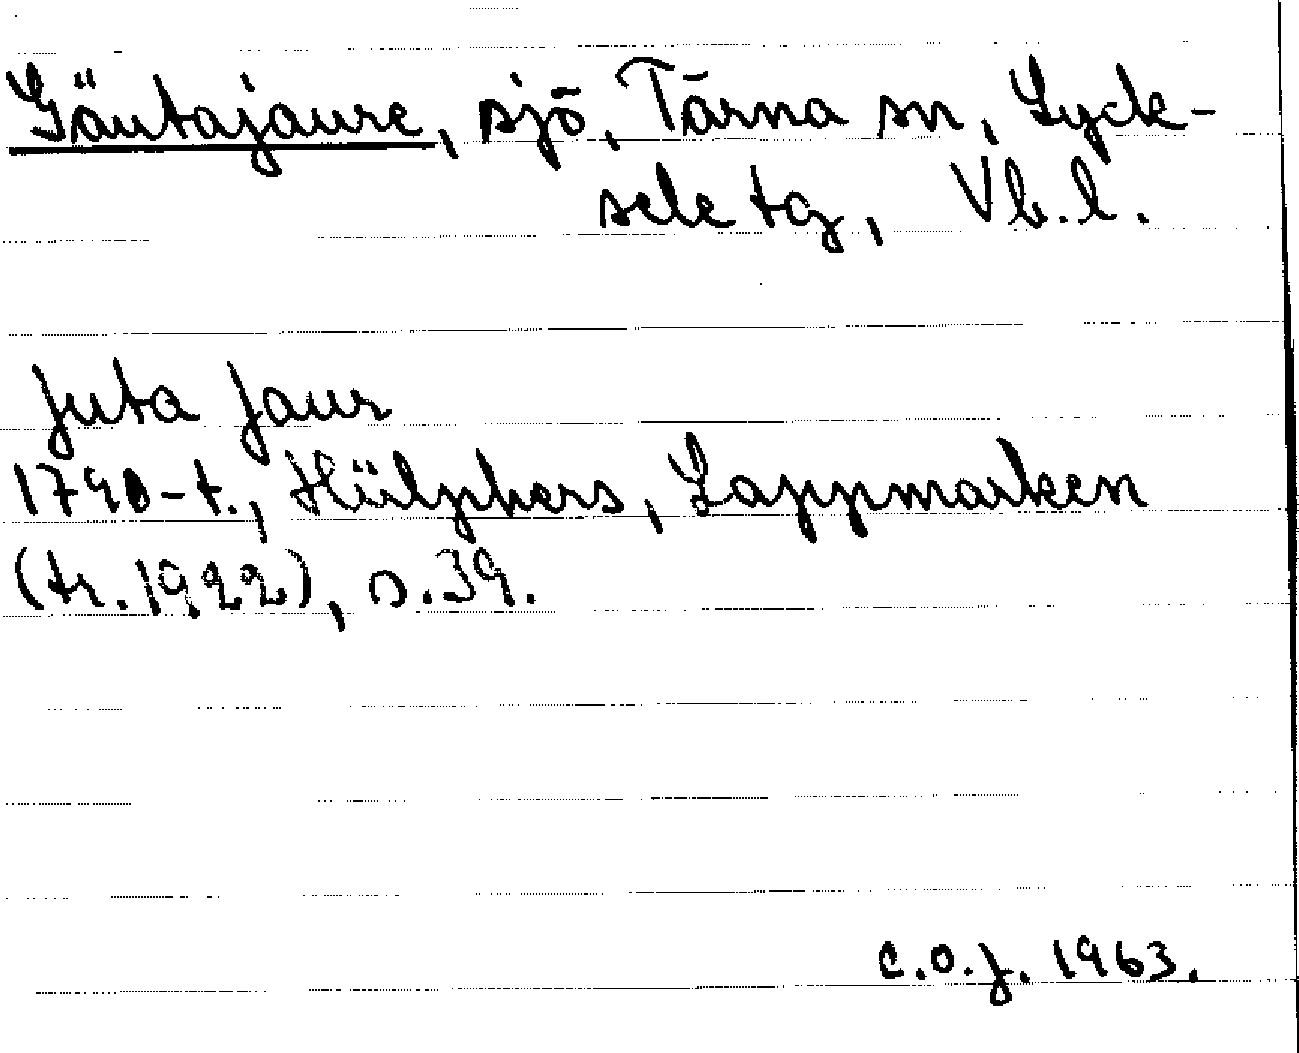 Gäutajaure, sjö, Tärna sn, Lyck-
sele tg, Vb.l.
Juta Jaur
1790-t., Hülphers, Lappmarken
(tr. 1922), s. 39.
C.O.J. 1963.